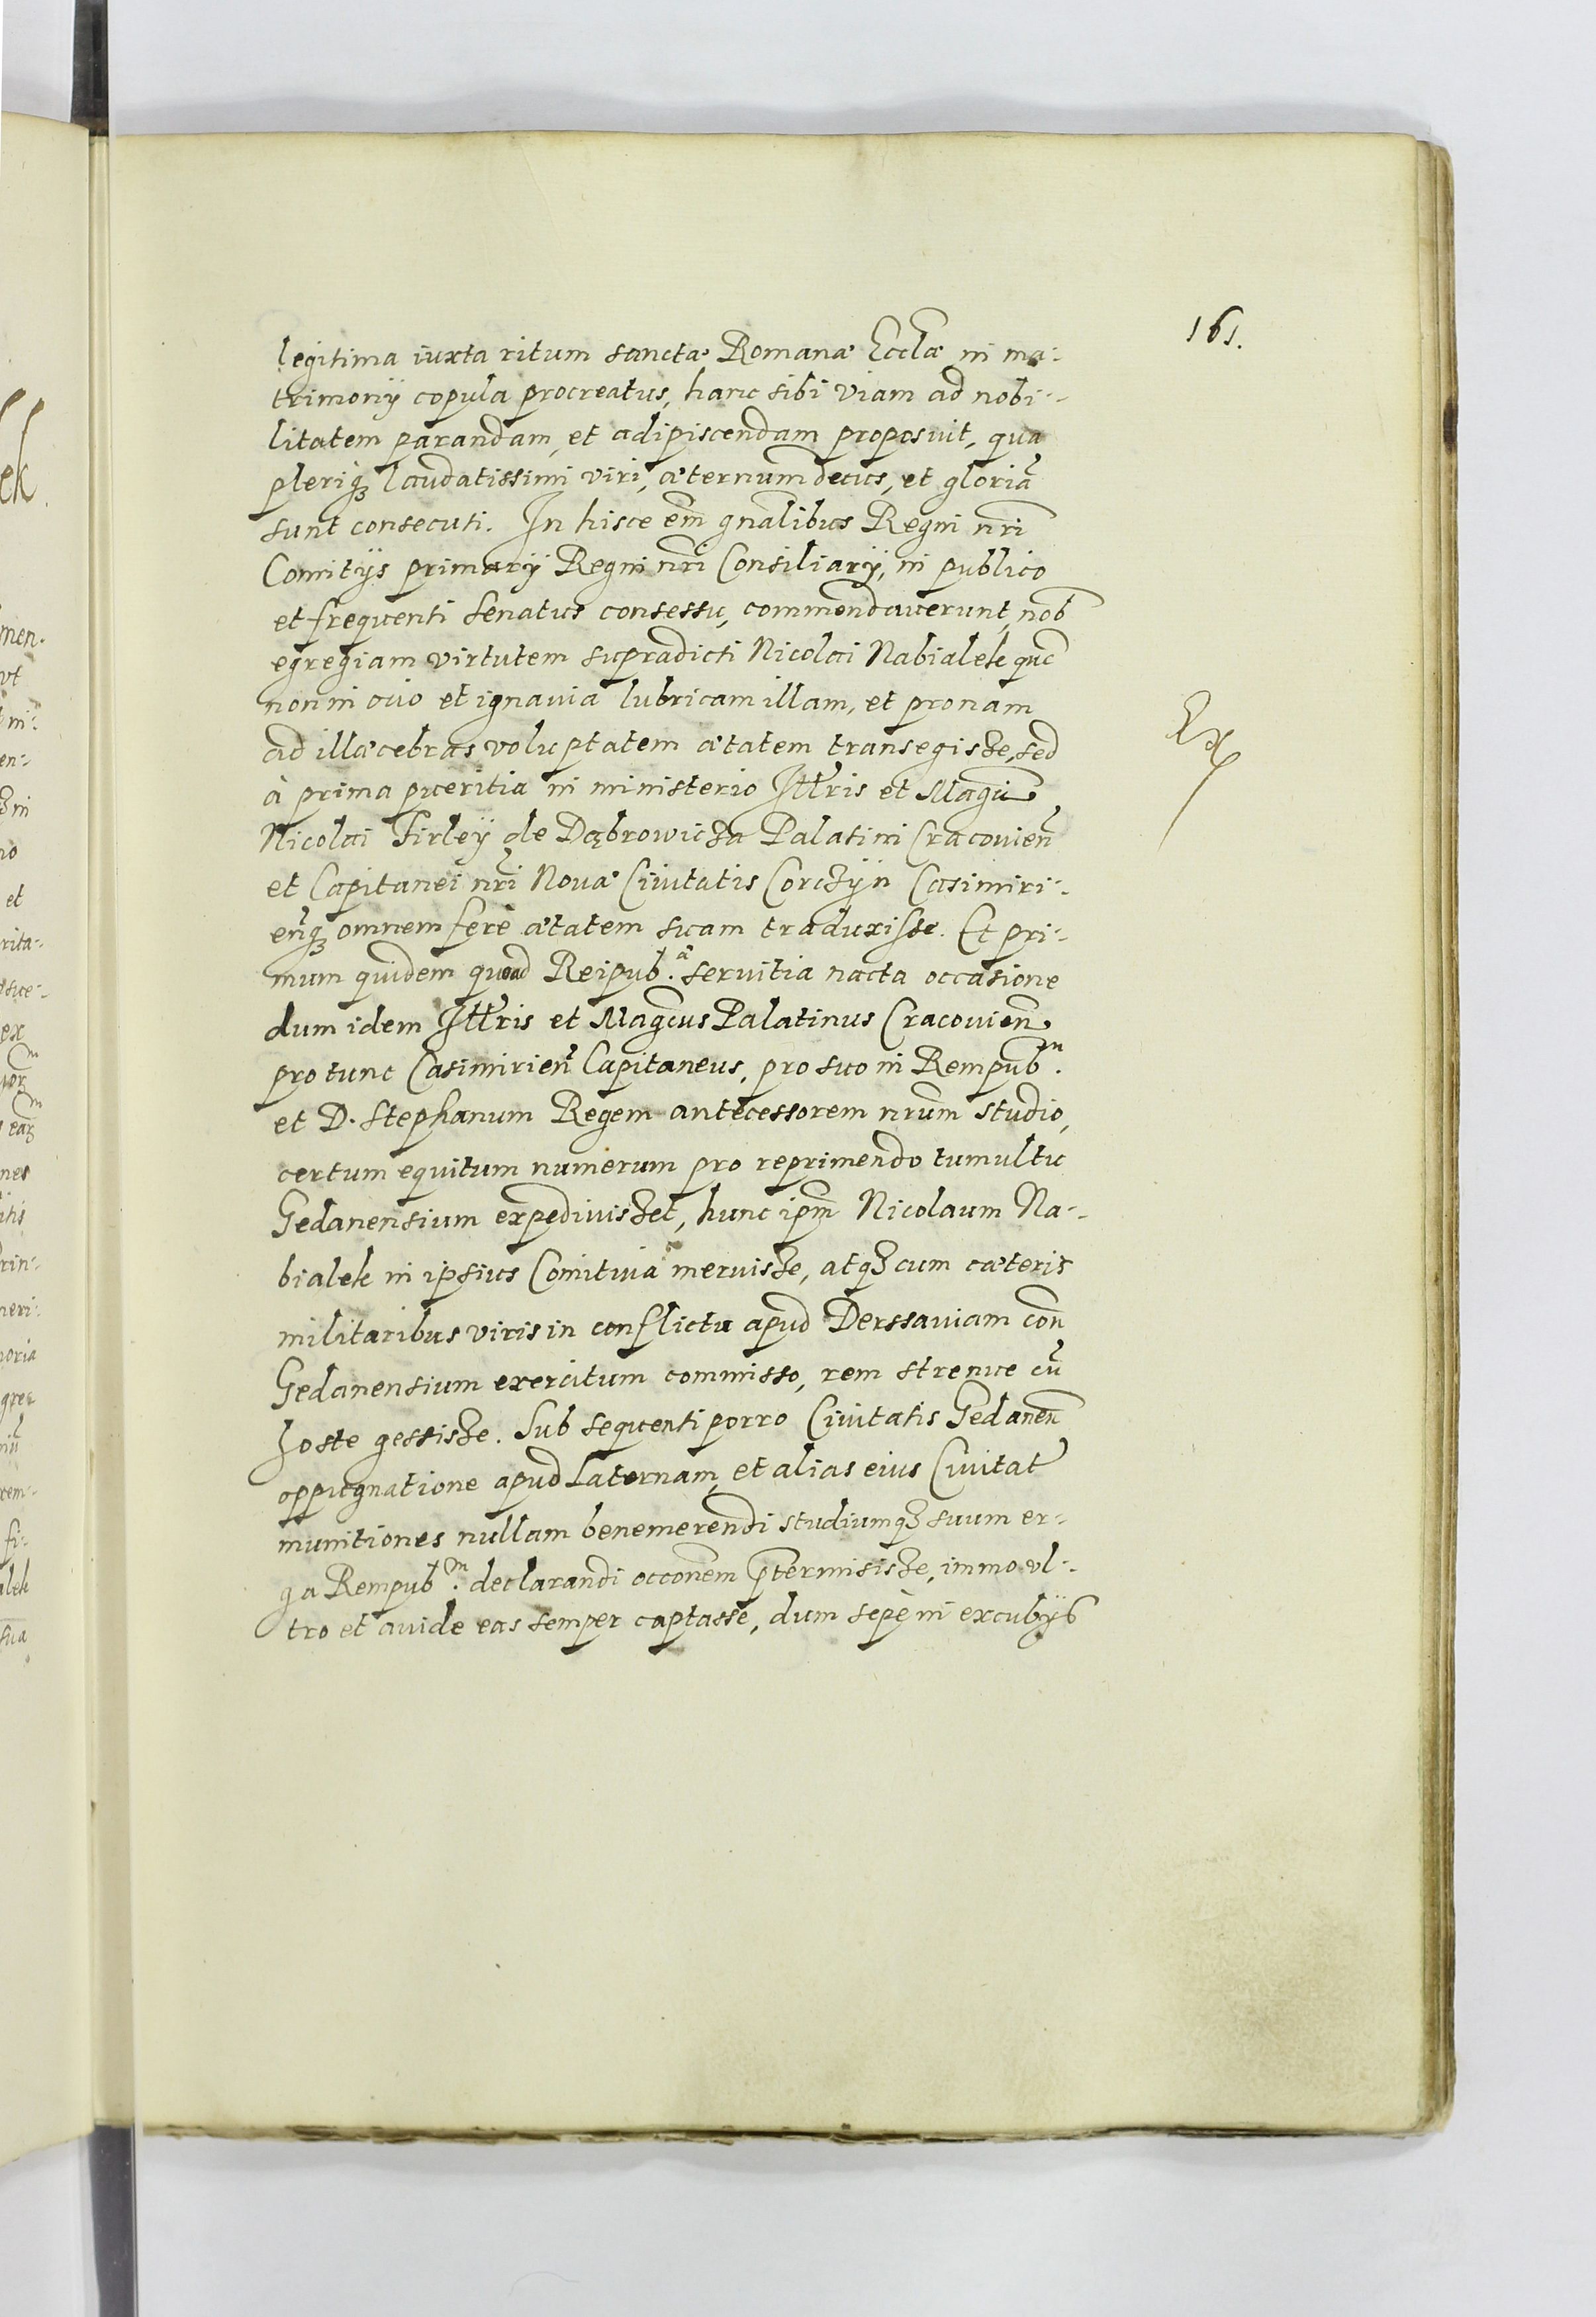 161.
legitima iuxta ritum sanctæ Romanæ Ecclæ in ma-
trimonij copula procreatus, hanc sibi viam ad nobi-
litatem parandam, et adipiscendam proposuit, qua
pleriq₃ laudatissimi viri, æternum decus, et gloriã
sunt consecuti. In hisce em̃ gnãlibus Regni nr̃i
Comitijs primarij Regni nr̃i Consiliarij, in publico
et frequenti senatus consessu, commendauerunt nob̃
egregiam virtutem supradicti Nicolai Nabialek quẽ
non in ocio et ignauia lubricam illam, et pronam
ad illæcebras voluptatem ætatem transegisse, sed
Ex
à prima pueritia in ministerio Illr̃is et Magci
Nicolai Firleÿ de Dąbrowicza Palatini Cracovien̄
et Capitanei nr̃i Nouæ Ciuitatis Corczÿn Casimiri-
en̄q₃ omnem ferè ætatem suam traduxisse. Et pri-
mum quidem quoad Reipub.ᵃ seruitia nacta occasione
dum idem Illr̃is et Magcus Palatinus Cracouien̄
pro tunc Casimirien̄ Capitaneus, pro suo in Rempub.ᵐ
et D. Stephanum Regem antecessorem nr̃um studio,
certum equitum numerum pro reprimendo tumultu
Gedanensium expediuisset, hunc ipm̃ Nicolaum Na-
bialek in ipsius Comitiua meruisse, atq₃ cum cæteris
militaribus viris in conflictu apud Derssauiam con̄
Gedanensium exercitum commisso, rem strenue cũ
hoste gessisse. Subsequenti porro Ciuitatis Gedanen̄
oppugnatione apud Laternam, et alias eius Ciuitat̃
munitiones nullam benemerendi studiumq₃ suum er-
ga Rempub.ᵐ declarandi occonem p̃termisisse, immo vl-
tro et auide eas semper captasse, dum sepè in excubijs